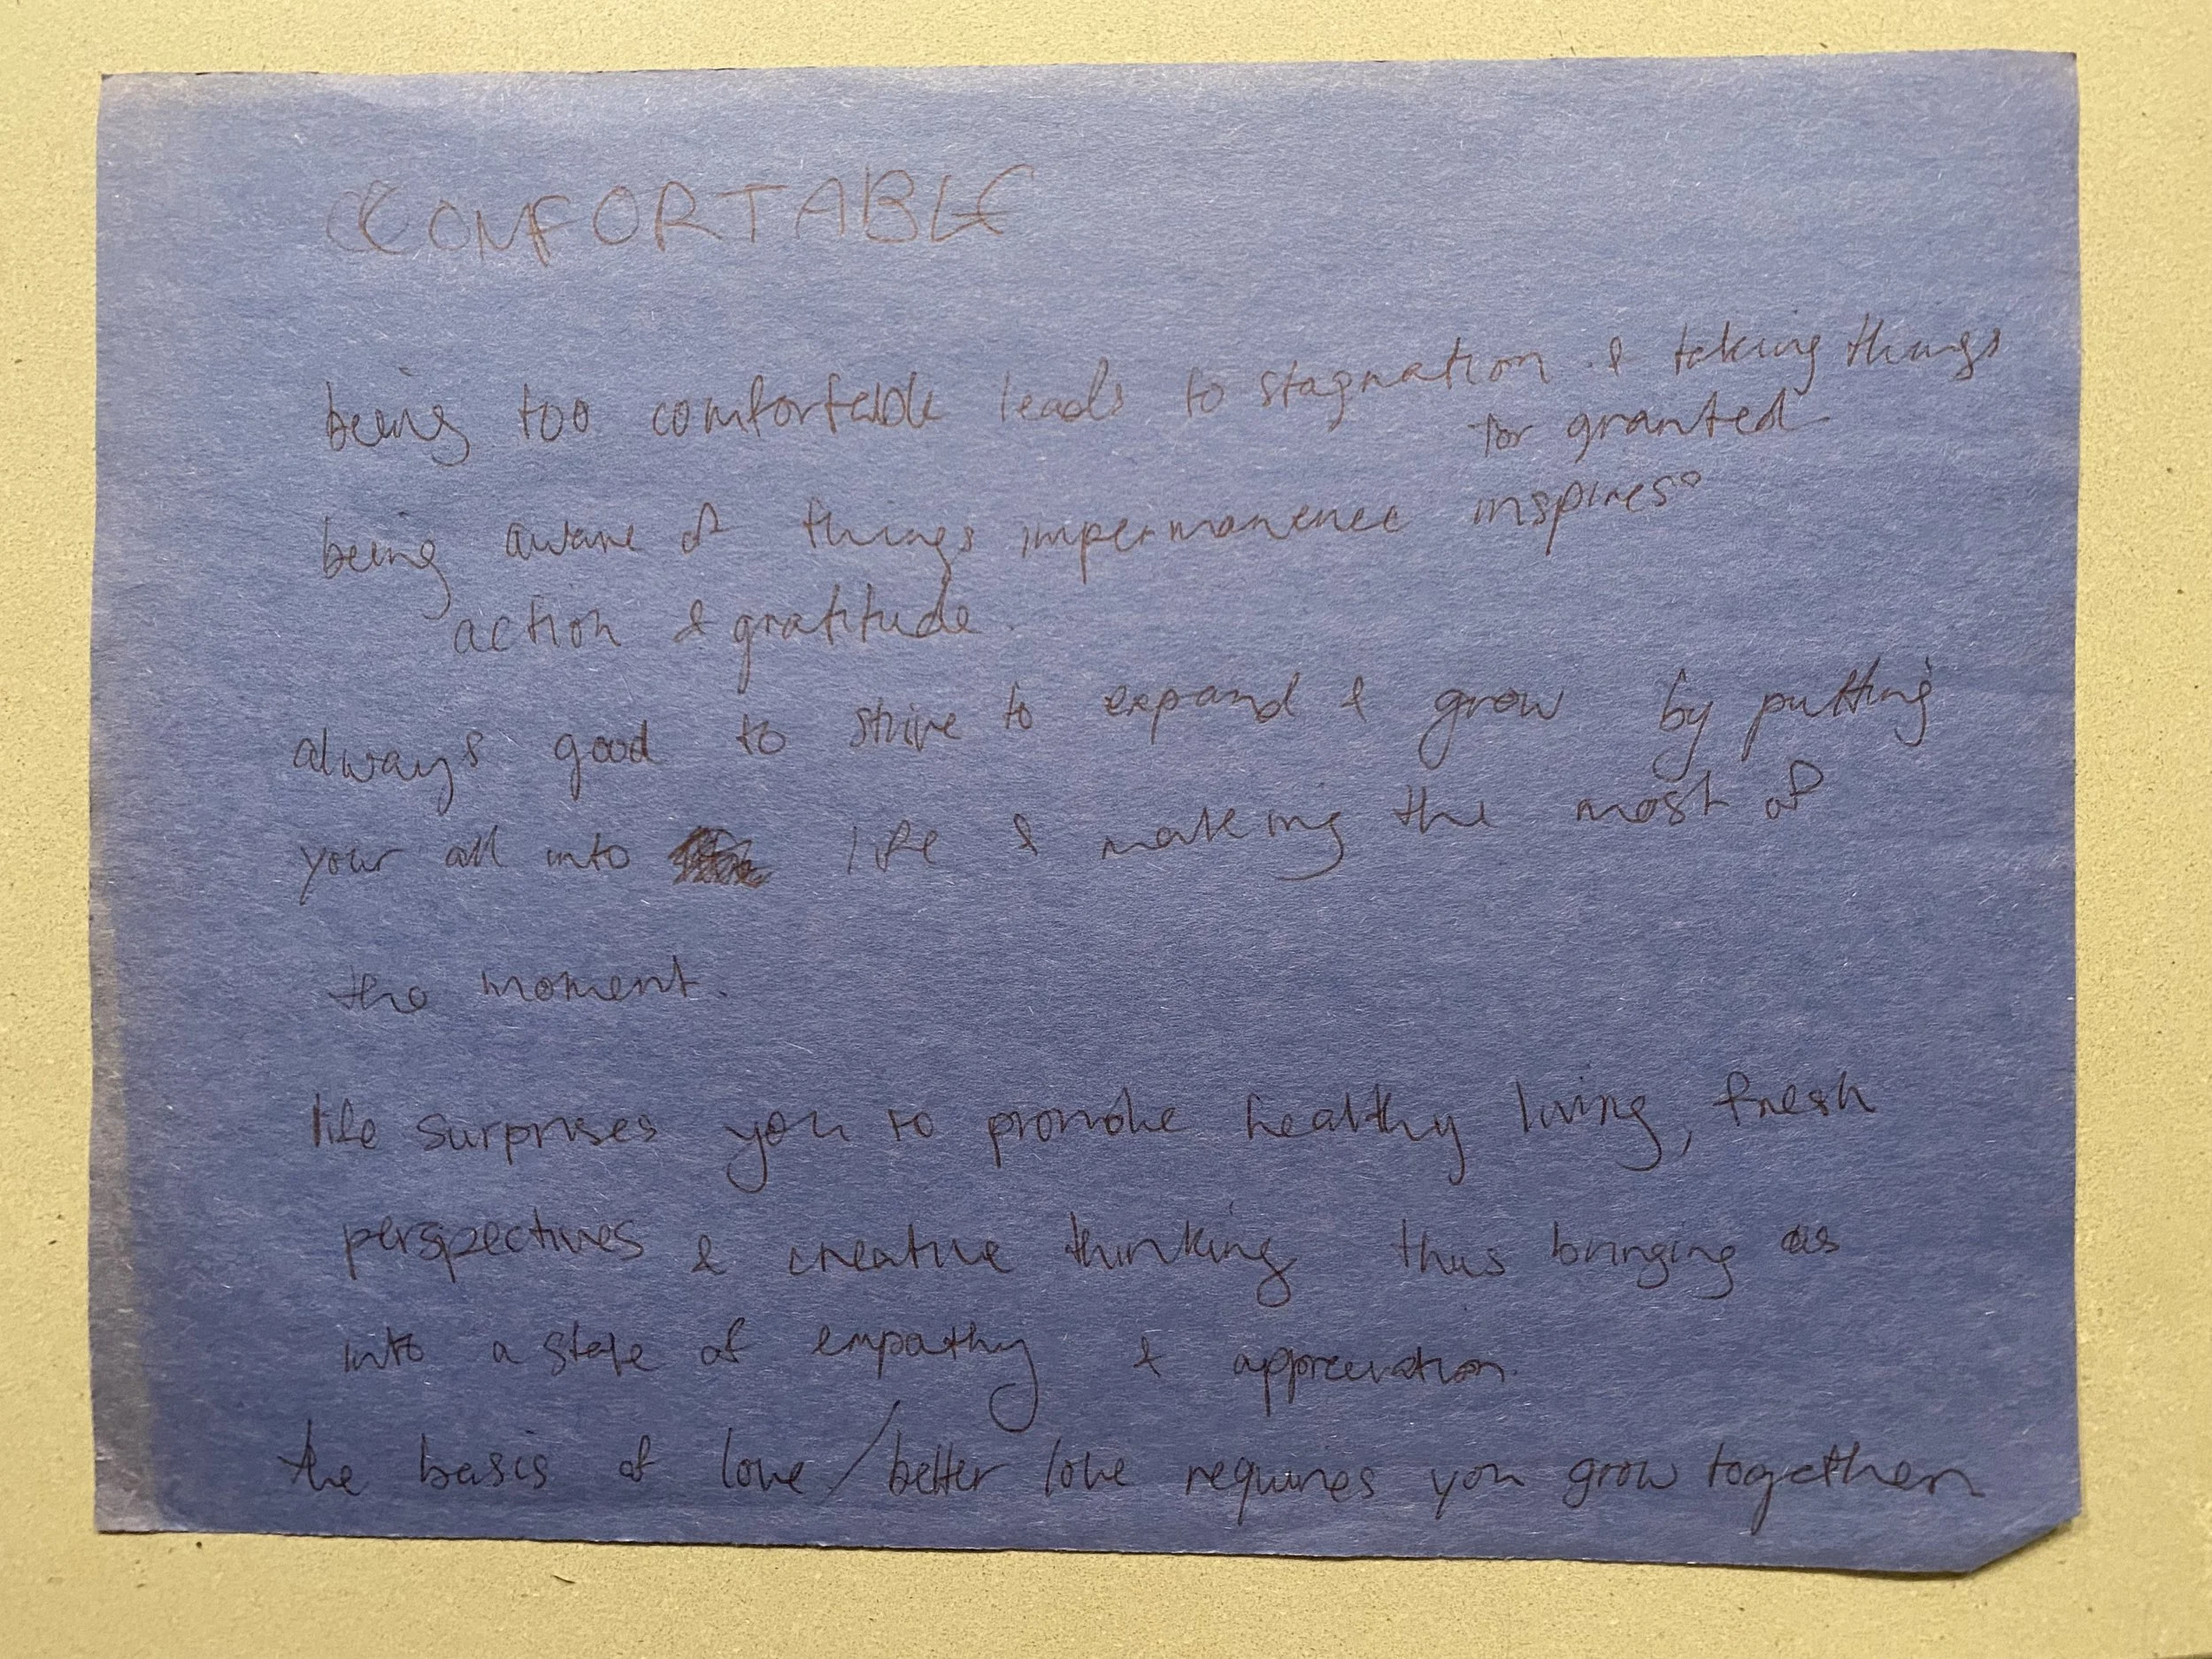 COMFORTABLE
being too comfortable leads to stagnation & taking things
for granted
being aware of things impermanence inspires
action & gratitude.
always good to strive to expand & grow by putting
your all into life & making the most of
the moment.
life surprises you to promote healthy living, fresh
perspectives & creative thinking thus bringing us
into a state of empathy & appreciation.
the basis of love / better love requires you grow together